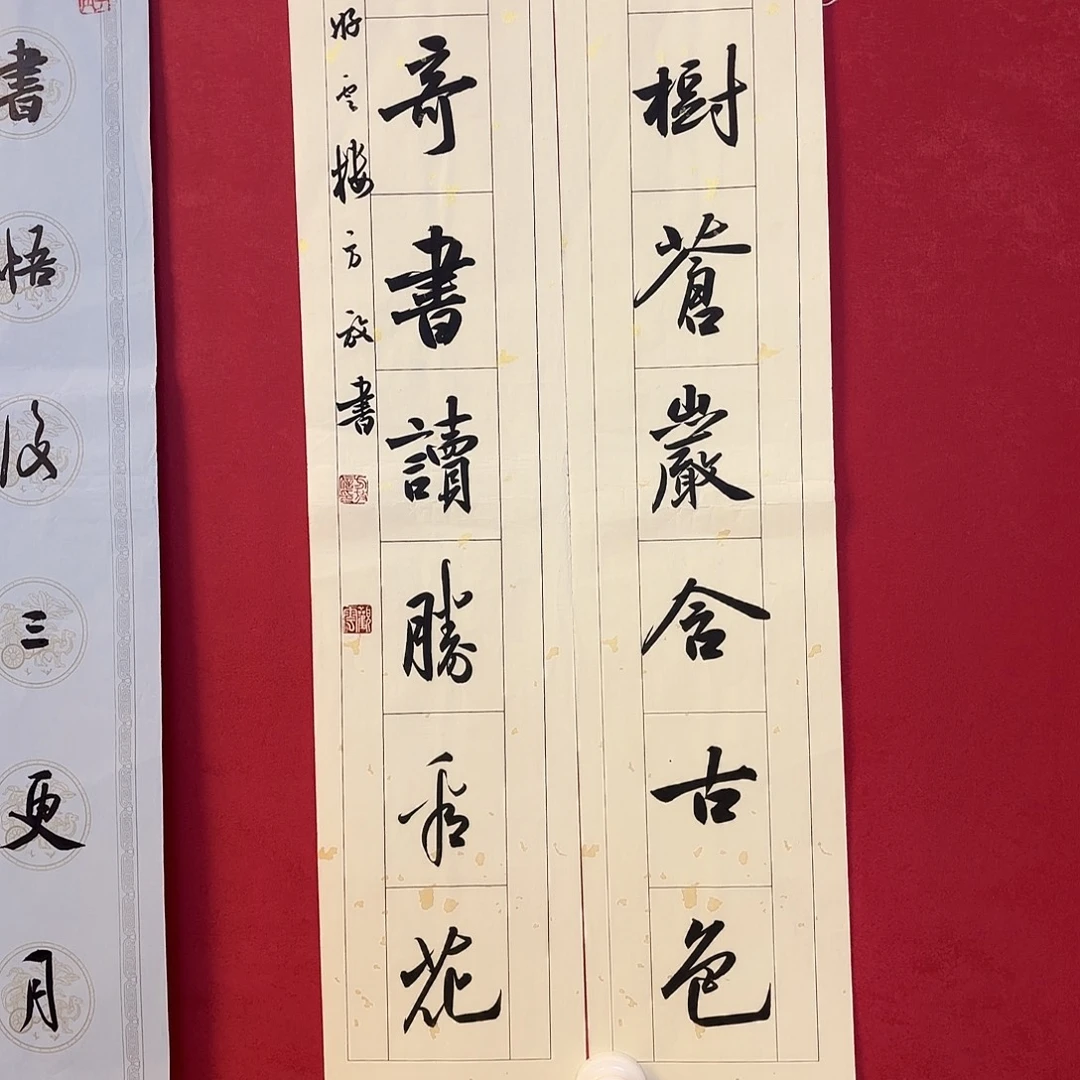 樹蒼巖含古色
奇書讀勝看花
好雲樓方放書
書悟後三更月